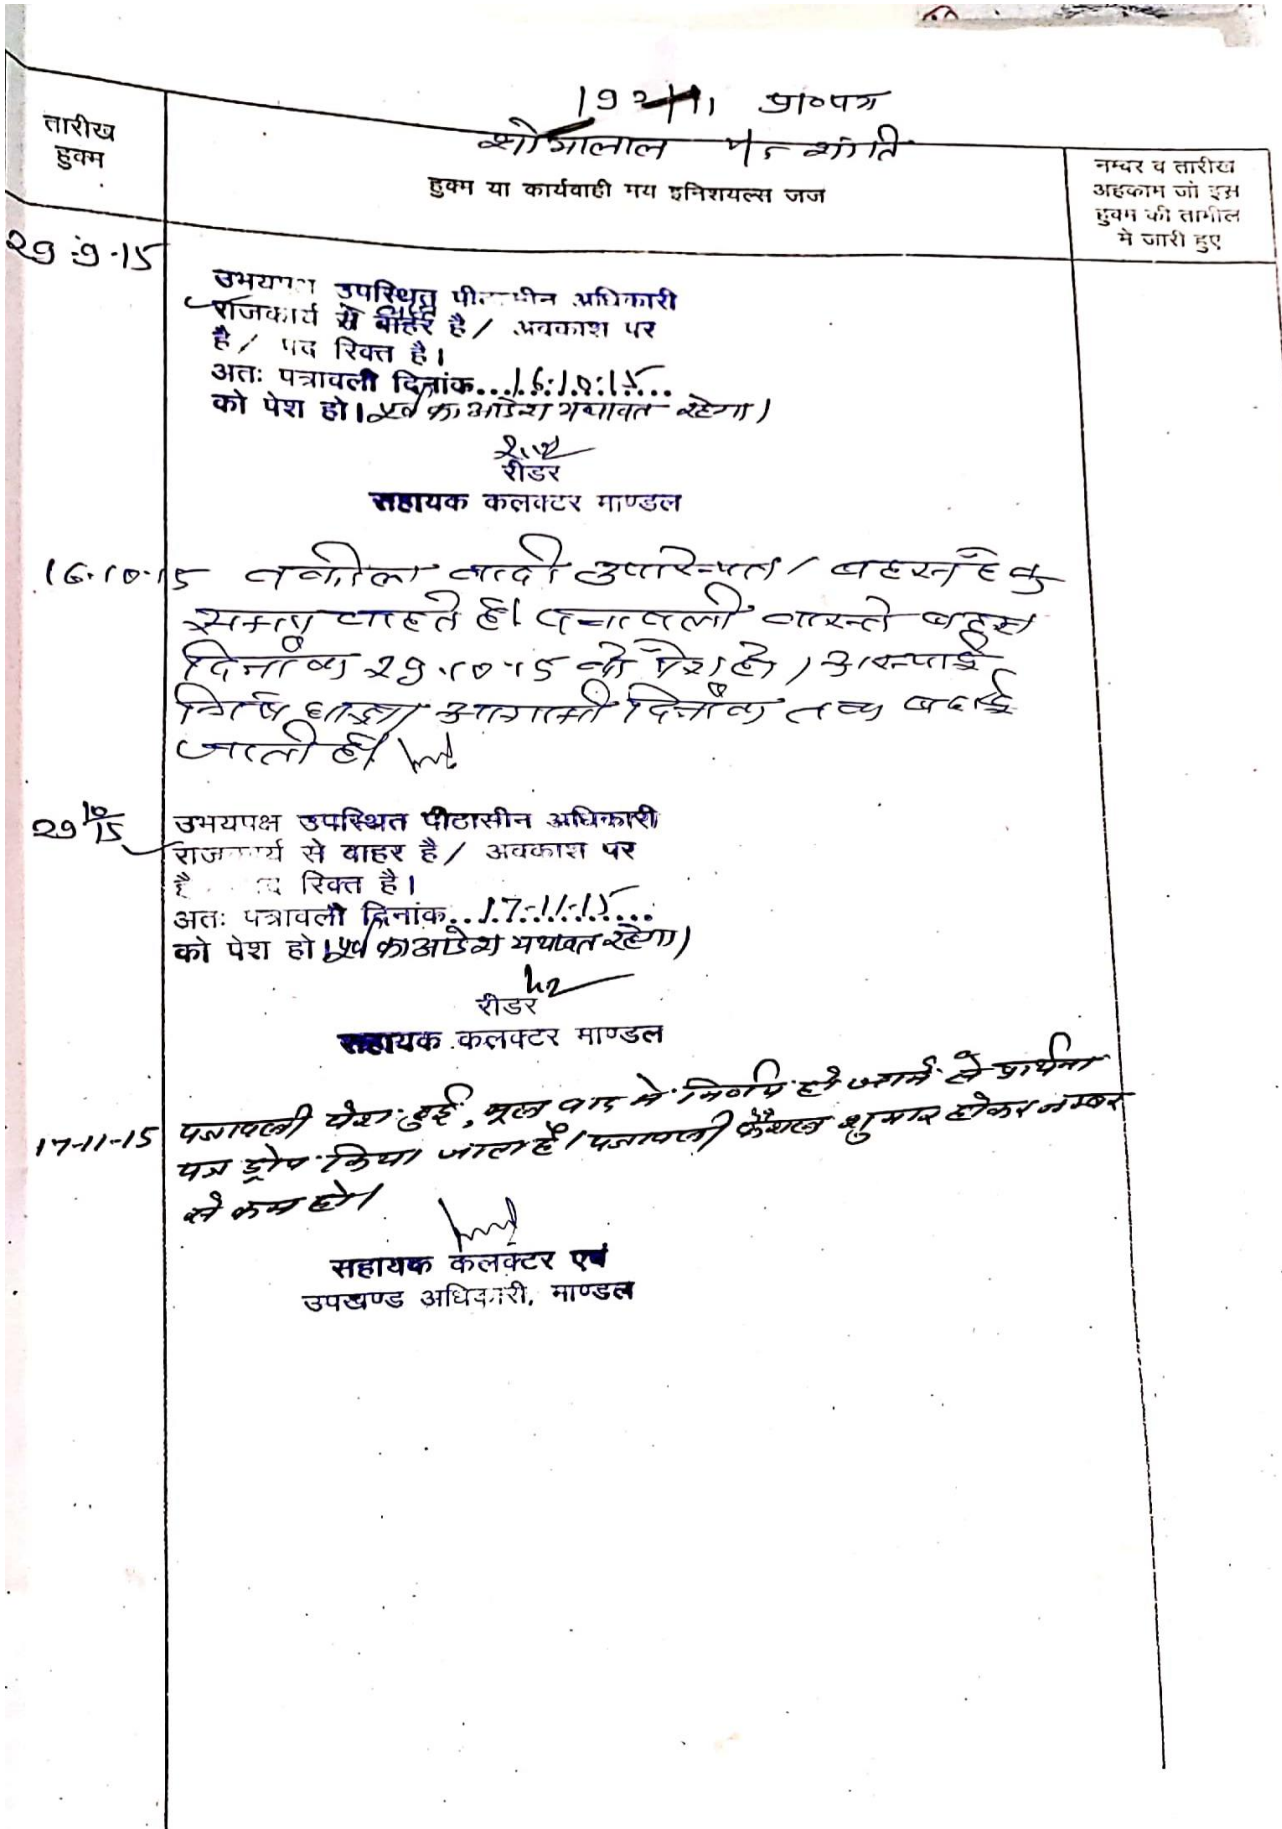 192/11 प्रा०पत्र
शोभालाल v/s शांति
तारीख
हुक्म
हुक्म या कार्यवाही मय इनिशयल्स जज
नम्बर व तारीख
अहकाम जो इस
हुक्म की तामील
मे जारी हुए
29.9.15
उभयपक्ष उपस्थित पीठासीन अधिकारी
राजकार्य से बाहर है / अवकाश पर
है / पद रिक्त है।
अतः पत्रावली दिनांक...16.10.15...
को पेश हो। पूर्व का आदेश यथावत रहेगा।
रीडर
सहायक कलक्टर माण्डल
16.10.15 वकील वादी उपस्थित। बहस हेतु
समय चाहते है। पत्रावली वास्ते बहस
दिनांक 29.10.15 को पेश हो। अस्थाई
निषेधाज्ञा आगामी दिनांक तक बढाई
जाती है।
29/10/15
उभयपक्ष उपस्थित पीठासीन अधिकारी
राजकार्य से बाहर है / अवकाश पर
है पद रिक्त है।
अतः पत्रावली दिनांक...17-11-15...
को पेश हो। पूर्व का आदेश यथावत रहेगा।
रीडर
सहायक कलक्टर माण्डल
17-11-15 पत्रावली पेश हुई, मूल वाद मे निर्णय हो जाने से प्रार्थना
पत्र ड्रोप किया जाता है। पत्रावली फैशल शुमार होकर नम्बर
से कम हो।
सहायक कलक्टर एवं
उपखण्ड अधिकारी, माण्डल